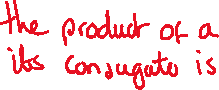 the product of a
its conjugate is